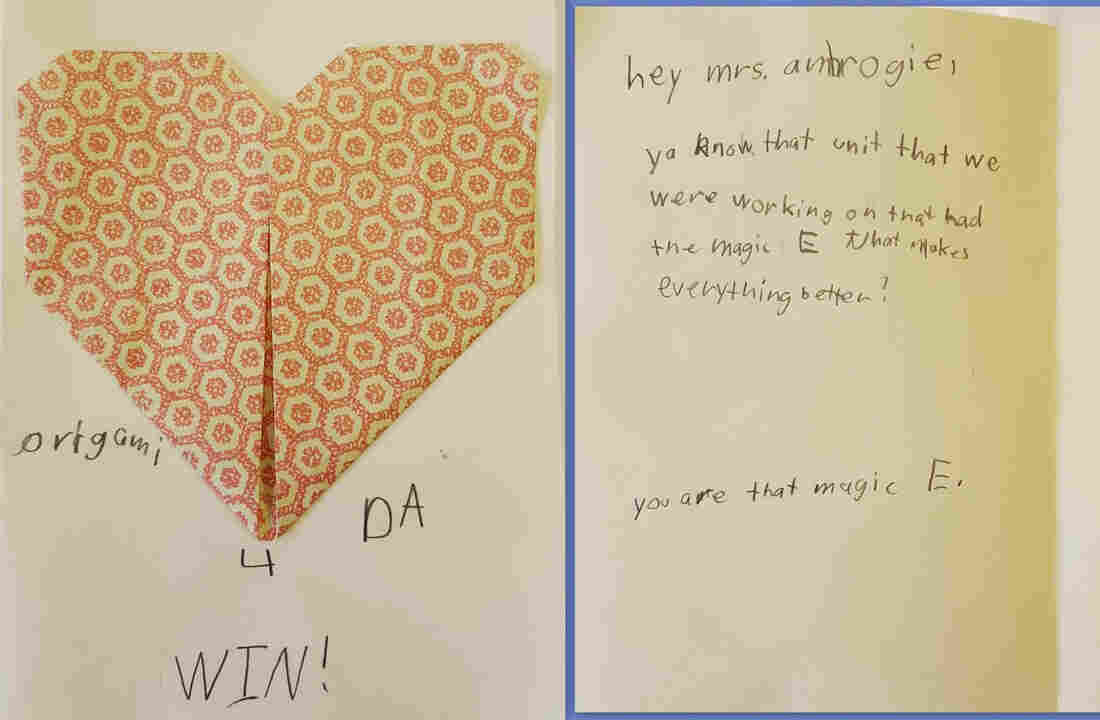 origami
4
DA
WIN!
hey mrs. ambrogie,
ya know that unit that we
were working on that had
the magic E that makes
everything better?
you are that magic E.